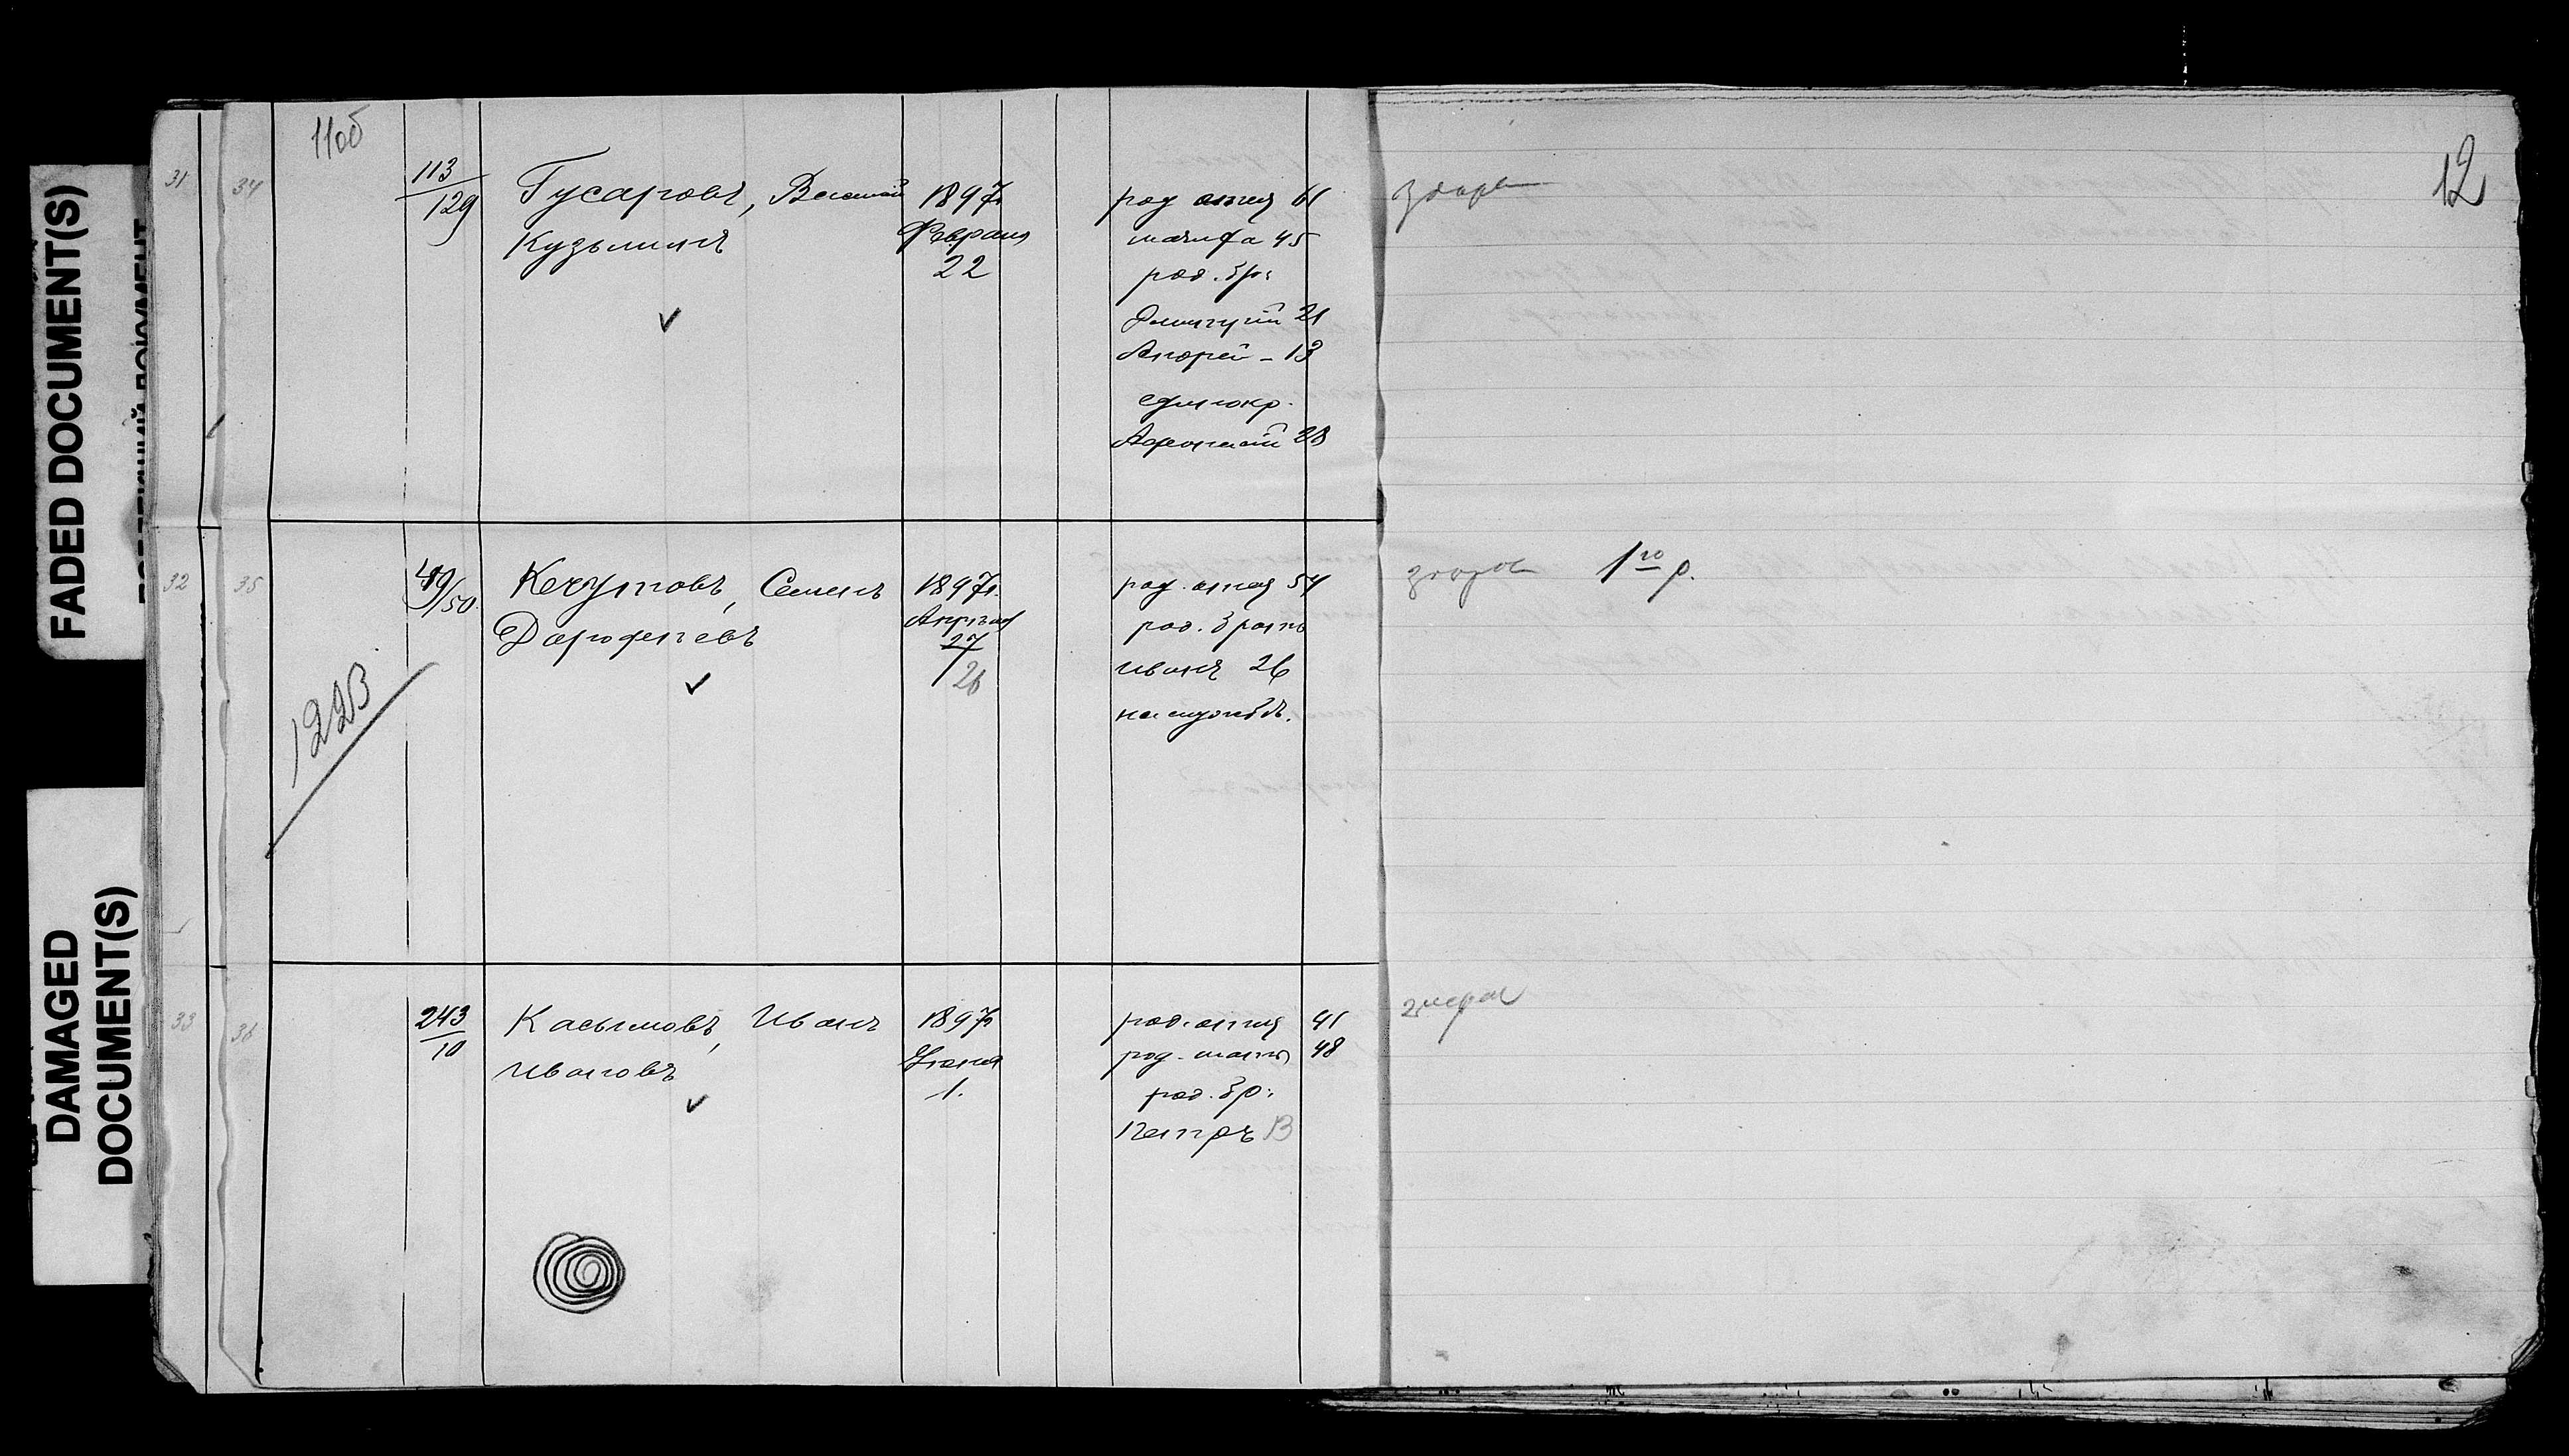 FADED DOCUMENT(S)
DAMAGED
DOCUMENT(S)
11об
12
31 34
113/129
Гусаровъ, Василій
Кузьминъ
1897
Февраля
22
род отец 61
мачиха 45
род. бр:
Дмитрій 21
Андрей - 13
единокр.
28
здоров
32 35
49/50
1223
Кечутовъ, Семенъ
Дорофеевъ
1897г.
Апрѣля
27
26
род. отец 54
род. братъ
Иванъ 26
здоров 1го р.
33 36
243/10
Касымовъ, Иванъ
Ивановъ
1897г
Іюня
1.
род. отец 41
род. мать 48
род. бр:
Петръ 13